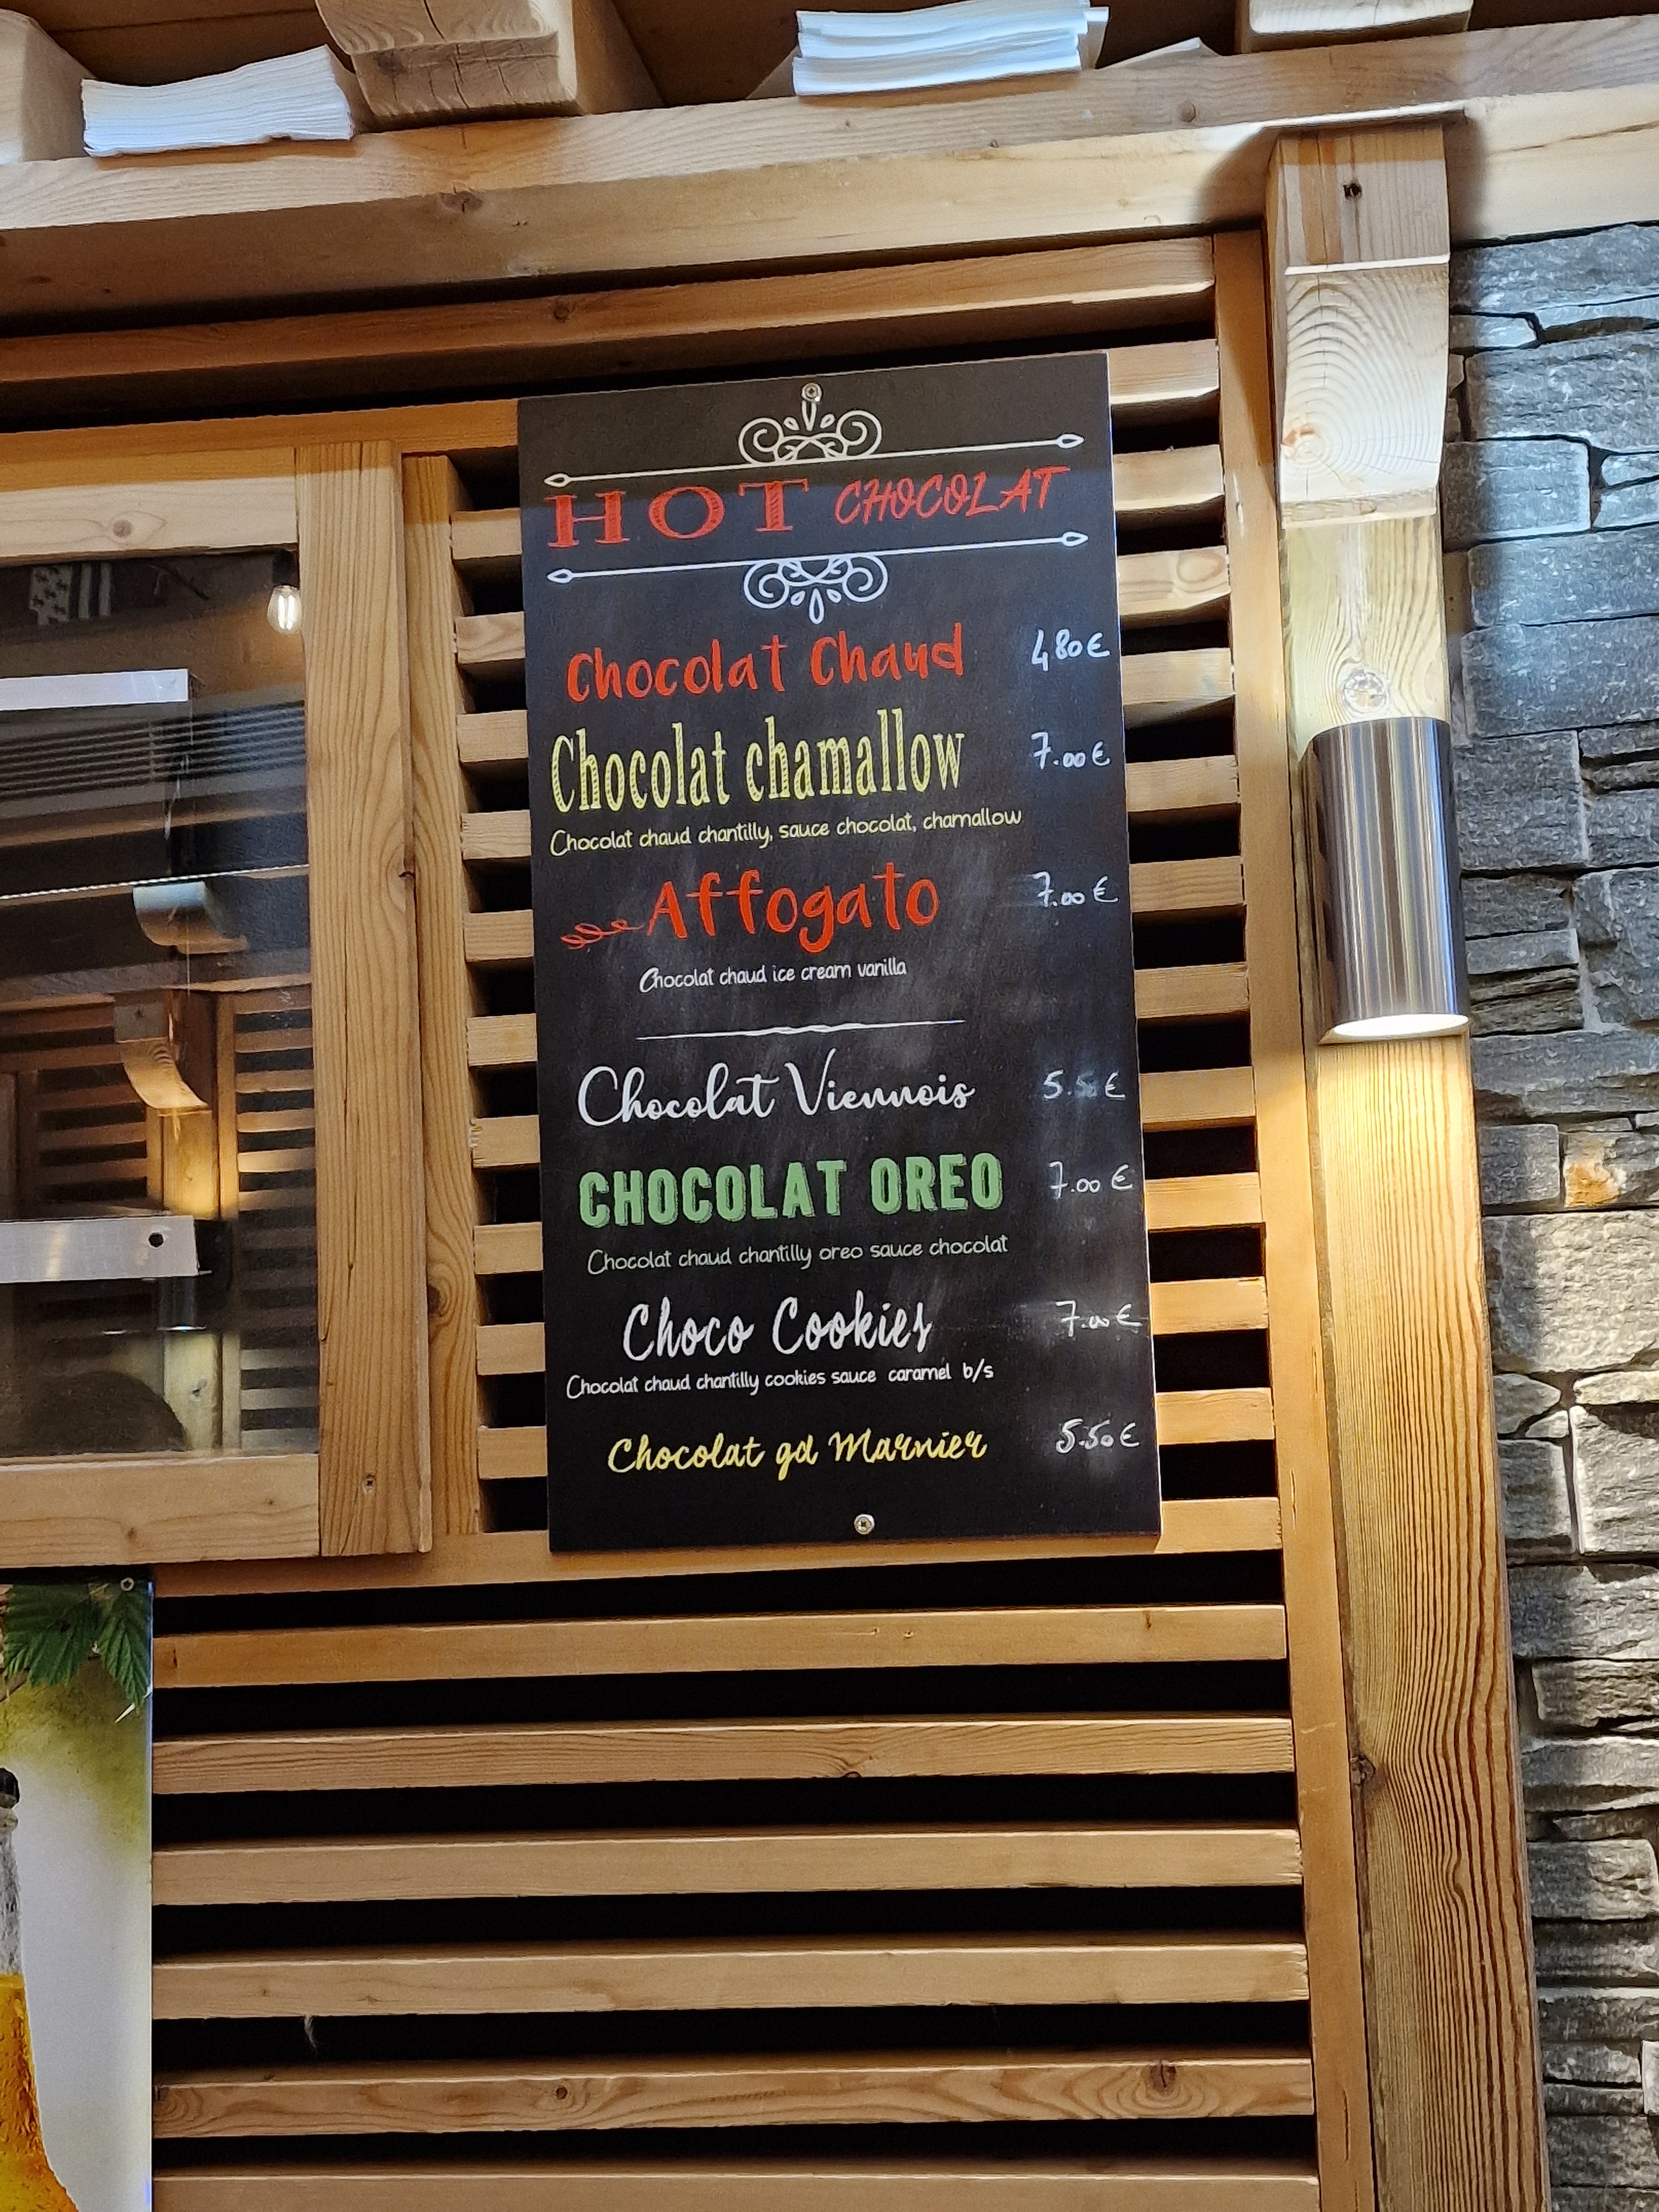 HOT CHOCOLAT
Chocolat Chaud 4.80€
Chocolat chamallow 7.00€
Chocolat chaud chantilly, sauce chocolat, chamallow
Affogato 7.00€
Chocolat chaud ice cream vanilla
Chocolat Viennois 5.50€
CHOCOLAT OREO 7.00€
Chocolat chaud chantilly oreo sauce chocolat
Choco Cookies 7.00€
Chocolat chaud chantilly cookies sauce caramel b/s
Chocolat gd Marnier 5.50€